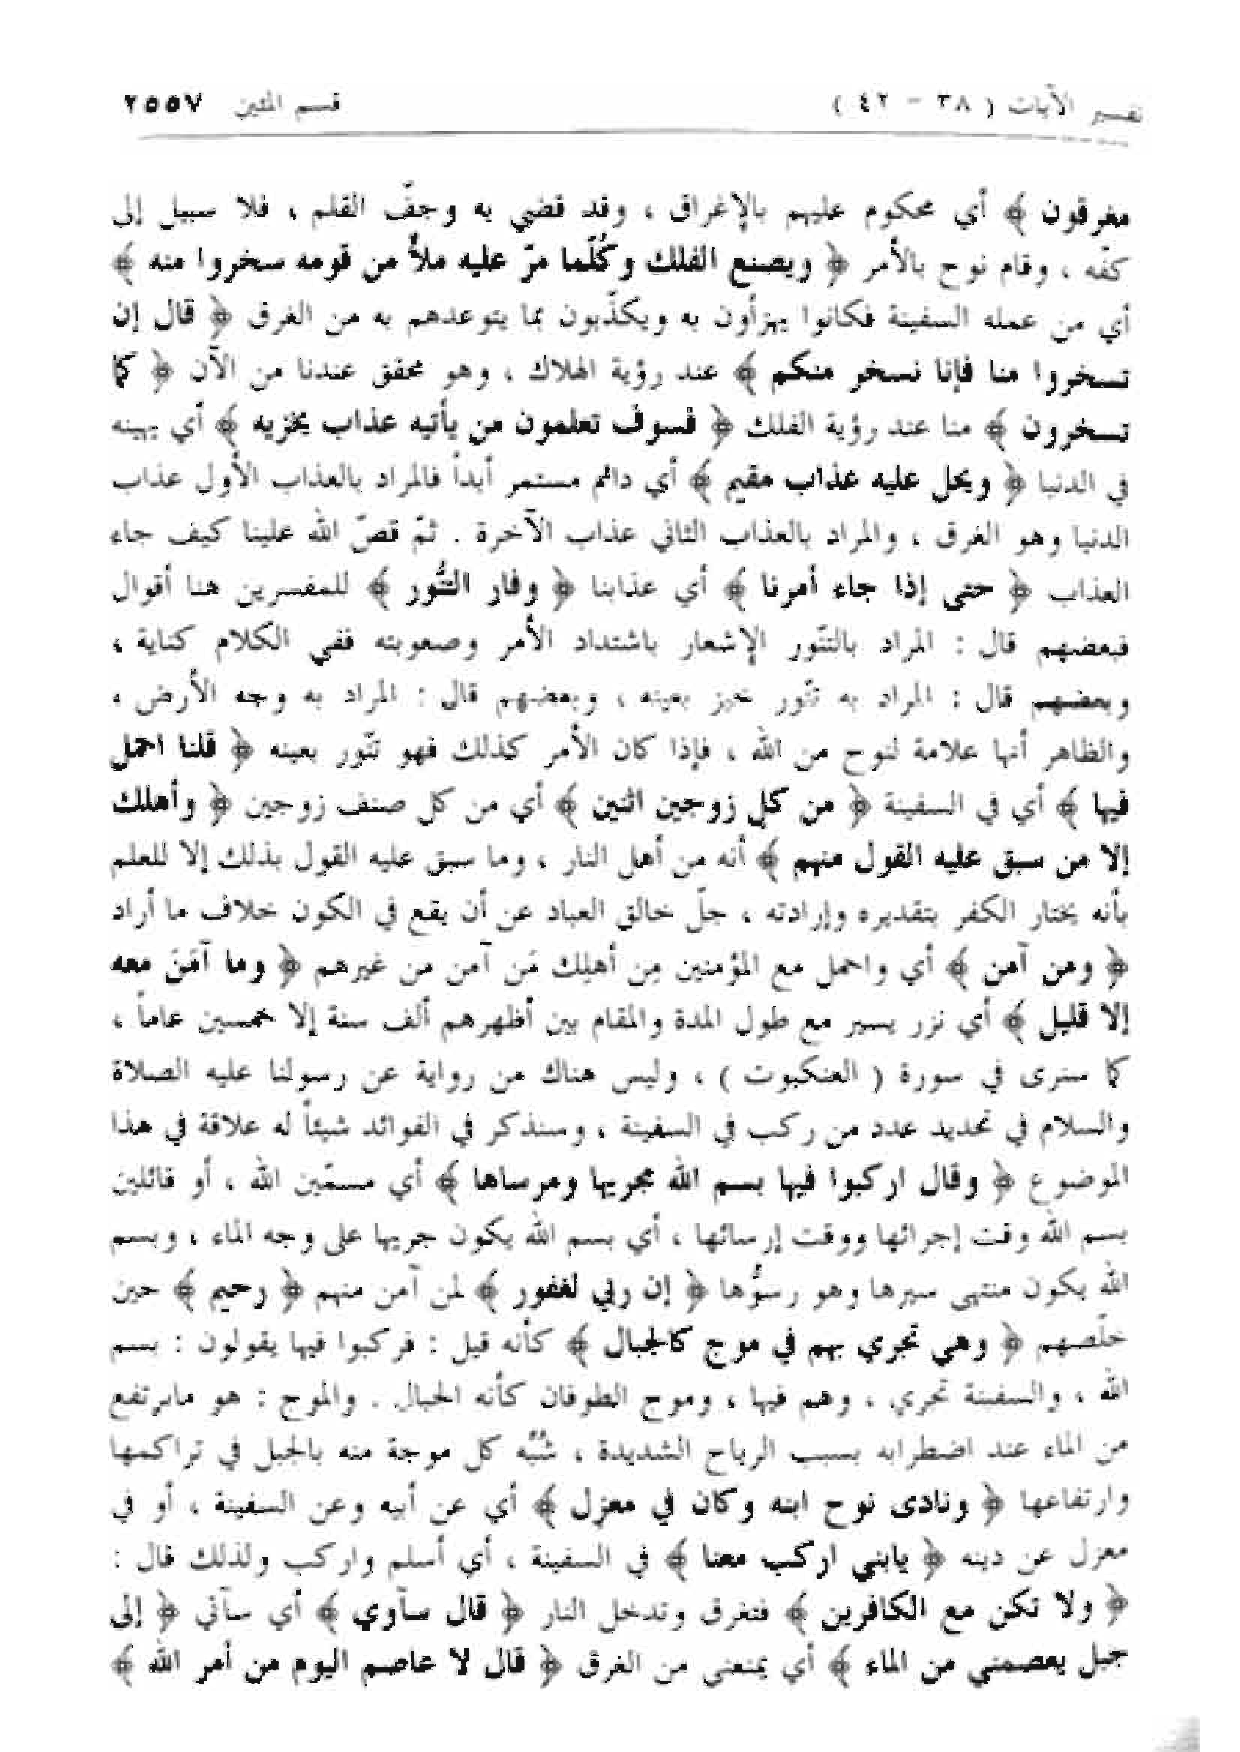 تفسير الآيات ( ٣٨ - ٤٢ ) قسم المئين ٢٥٥٧
مغرقون ﴾ أي محكوم عليهم بالإغراق ، وقد قضي به وجفّ القلم ، فلا سبيل إلى
كفّه ، وقام نوح بالأمر ﴿ ويصنع الفلك وكُلّما مرّ عليه ملأٌ من قومه سخروا منه ﴾
أي من عمله السفينة فكانوا يهزأون به ويكذّبون بما يتوعدهم به من الغرق ﴿ قال إن
تسخروا منا فإنا نسخر منكم ﴾ عند رؤية الهلاك ، وهو محقق عندنا من الآن ﴿ كما
تسخرون ﴾ منا عند رؤية الفلك ﴿ فسوف تعلمون من يأتيه عذاب يخزيه ﴾ أي يهينه
في الدنيا ﴿ ويحل عليه عذاب مقيم ﴾ أي دائم مستمر أبداً فالمراد بالعذاب الأول عذاب
الدنيا وهو الغرق ، والمراد بالعذاب الثاني عذاب الآخرة . ثمّ قصّ الله علينا كيف جاء
العذاب ﴿ حتى إذا جاء أمرنا ﴾ أي عذابنا ﴿ وفار التنُّور ﴾ للمفسرين هنا أقوال
فبعضهم قال : المراد بالتنّور الإشعار باشتداد الأمر وصعوبته ففي الكلام كناية ،
وبعضهم قال : المراد به تنّور خبز بعينه ، وبعضهم قال : المراد به وجه الأرض ،
والظاهر أنها علامة لنوح من الله ، فإذا كان الأمر كذلك فهو تنّور بعينه ﴿ قلنا احمل
فيها ﴾ أي في السفينة ﴿ من كلٍ زوجين اثنين ﴾ أي من كل صنف زوجين ﴿ وأهلك
إلا من سبق عليه القول منهم ﴾ أنه من أهل النار ، وما سبق عليه القول بذلك إلا للعلم
بأنه يختار الكفر بتقديره وإرادته ، جلّ خالق العباد عن أن يقع في الكون خلاف ما أراد
﴿ ومن آمن ﴾ أي واحمل مع المؤمنين مِن أهلِك مَن آمن من غيرهم ﴿ وما آمَنَ معه
إلا قليل ﴾ أي نزر يسير مع طول المدة والمقام بين أظهرهم ألف سنة إلا خمسين عاماً ،
كما سنرى في سورة ( العنكبوت ) ، وليس هناك من رواية عن رسولنا عليه الصلاة
والسلام في تحديد عدد من ركب في السفينة ، وسنذكر في الفوائد شيئاً له علاقة في هذا
الموضوع ﴿ وقال اركبوا فيها بسم الله مجريها ومرساها ﴾ أي مسمّين الله ، أو قائلين
بسم الله وقت إجرائها ووقت إرسائها ، أي بسم الله يكون جريها على وجه الماء ، وبسم
الله يكون منتهى سيرها وهو رسوُّها ﴿ إن ربي لغفور ﴾ لمن آمن منهم ﴿ رحيم ﴾ حين
خلّصهم ﴿ وهي تجري بهم في موج كالجبال ﴾ كأنه قيل : فركبوا فيها يقولون : بسم
الله ، والسفينة تجري ، وهم فيها ، وموج الطوفان كأنه الجبال . والموج : هو مايرتفع
من الماء عند اضطرابه بسبب الرياح الشديدة ، شُبِّه كل موجة منه بالجبل في تراكمها
وارتفاعها ﴿ ونادى نوح ابنه وكان في معزِل ﴾ أي عن أبيه وعن السفينة ، أو في
معزل عن دينه ﴿ يابني اركب معنا ﴾ في السفينة ، أي أسلم واركب ولذلك قال :
﴿ ولا تكن مع الكافرين ﴾ فتغرق وتدخل النار ﴿ قال سآوي ﴾ أي سآتي ﴿ إلى
جبل يعصمني من الماء ﴾ أي يمنعني من الغرق ﴿ قال لا عاصم اليوم من أمر الله ﴾